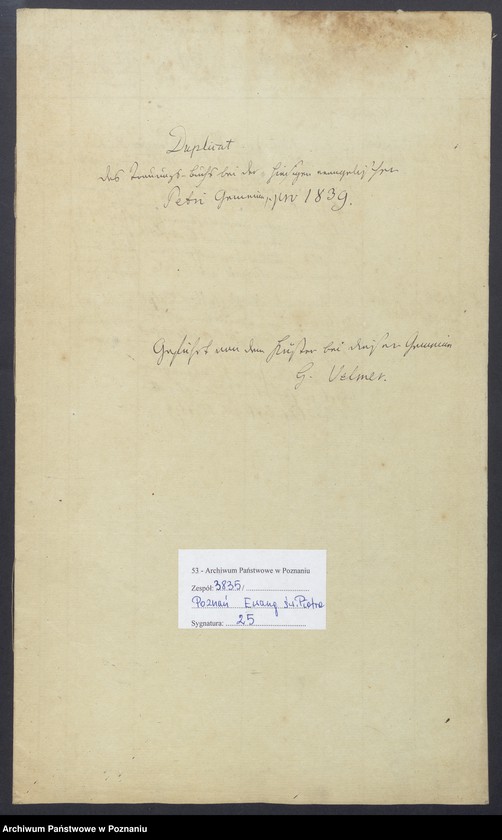 Duplicat
des Trauungs-Buchs bei der hiesigen evangelischen
Petri Gemeinde pro 1839.
Geführt von dem Küster bei dieser Gemeinde
G. Velmer.
53 - Archiwum Państwowe w Poznaniu
Zespół: 3835/
Poznań Ewang. św. Piotra
Sygnatura: 25
Archiwum Państwowe w Poznaniu